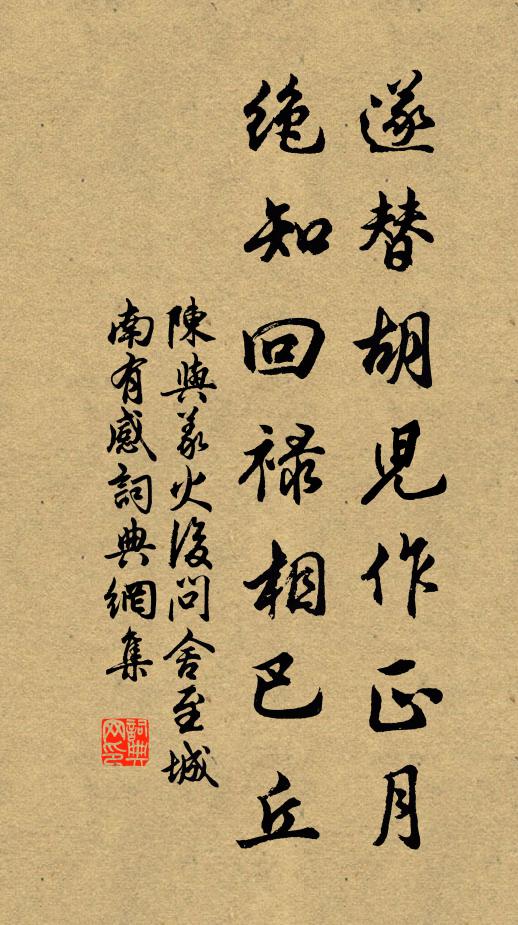 遂替胡兒作正月
絶知回祿相巴丘
陳與義火後問舍至城
南有感詞典網集
詞典
网印